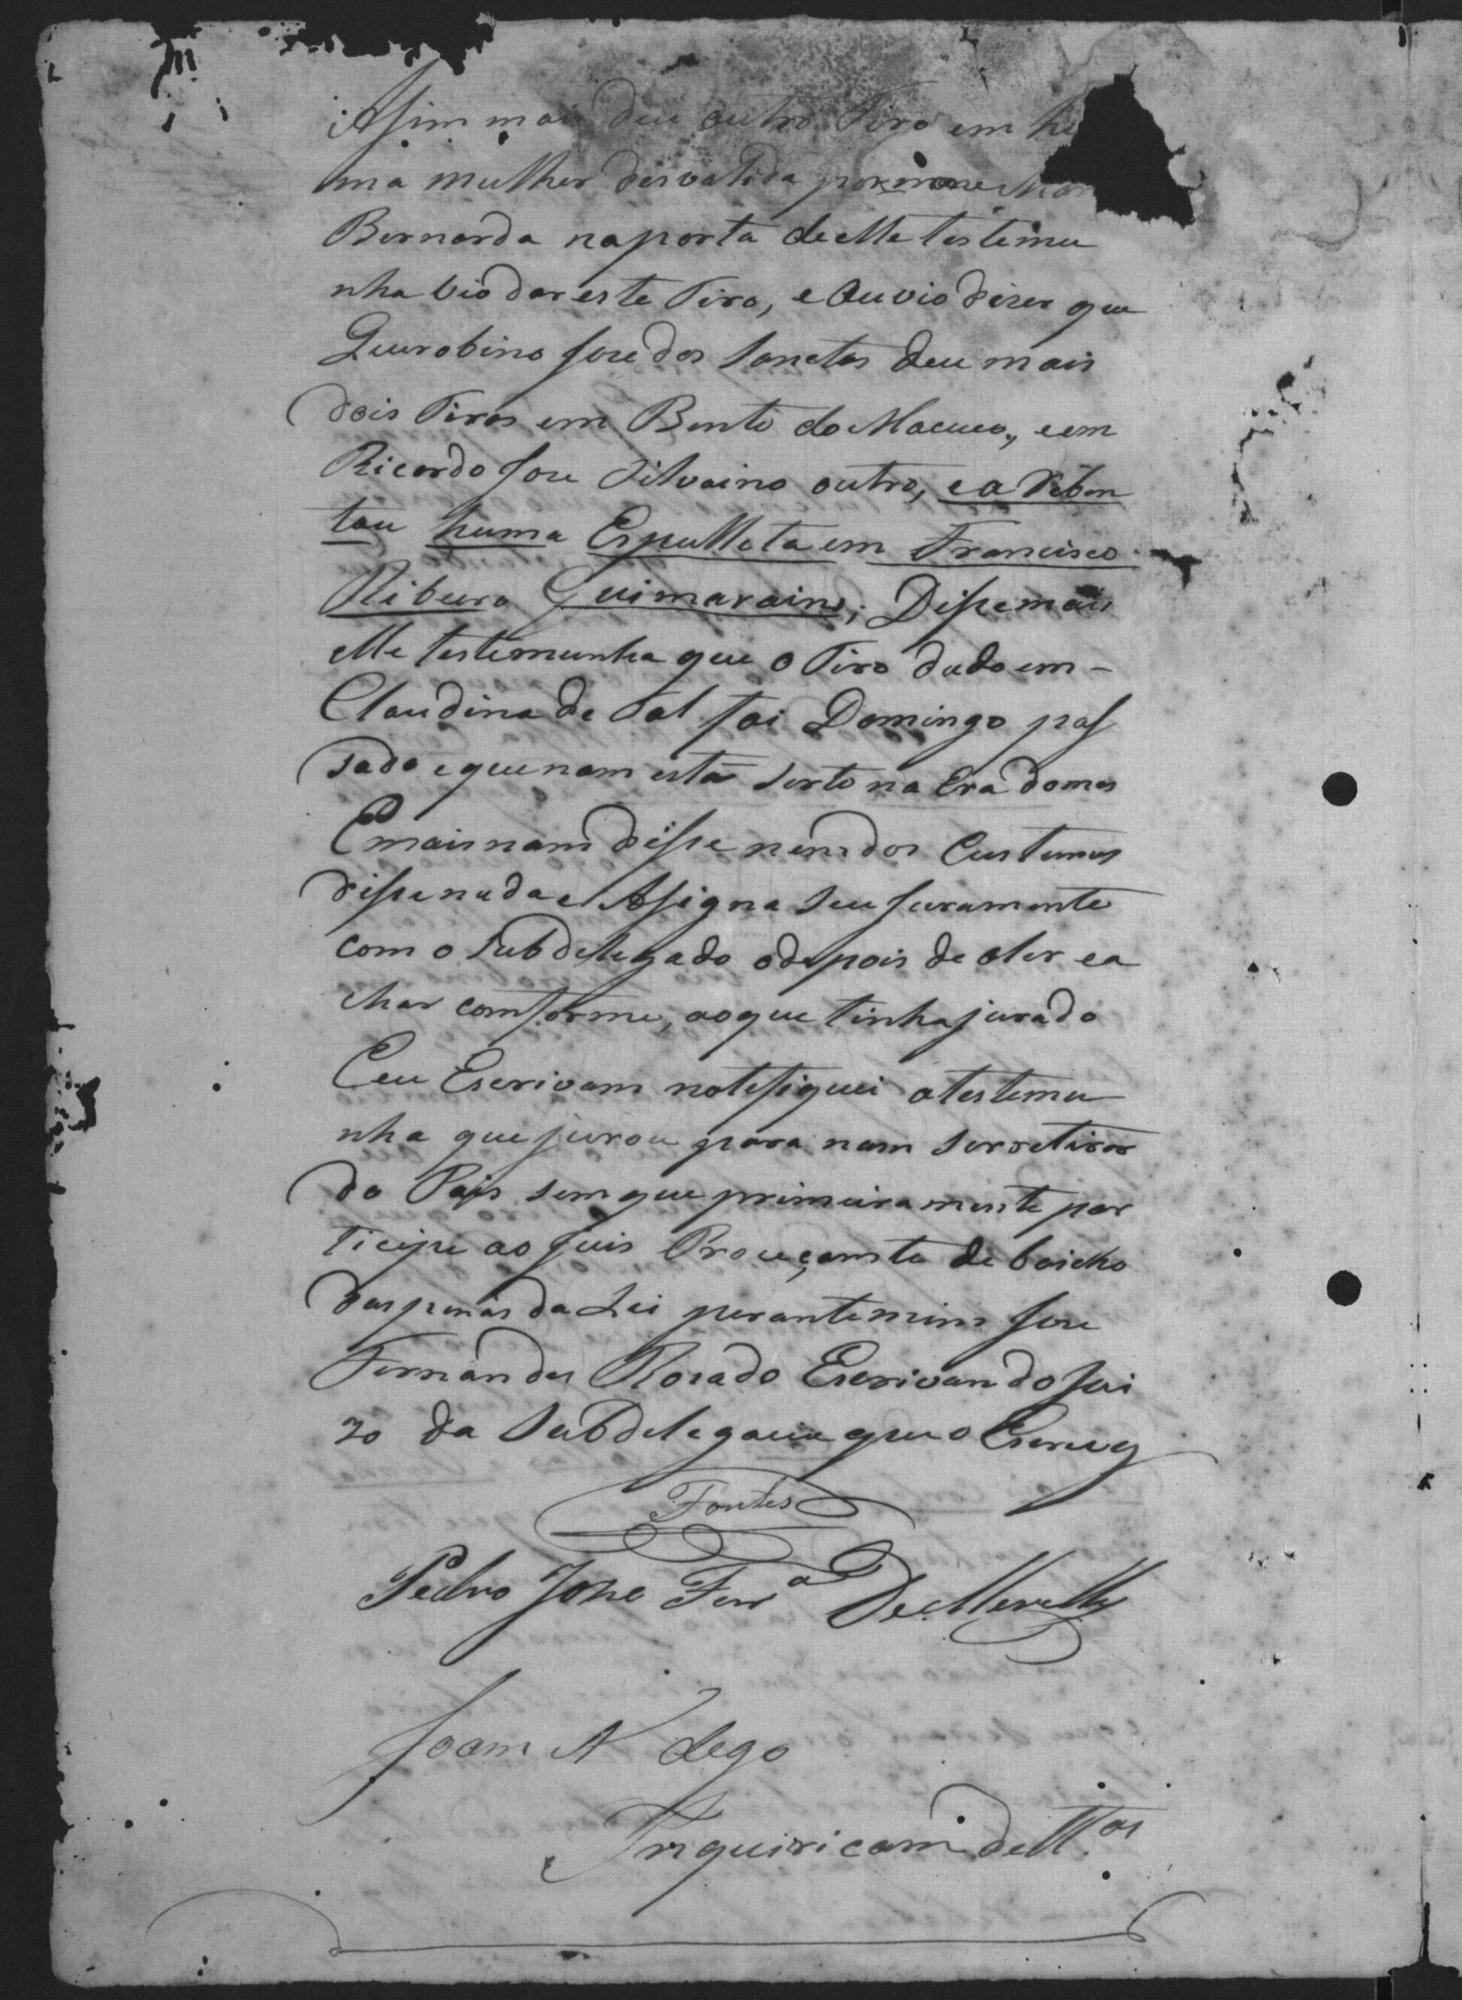 Assim mais deu outro Tiro em hu
ma mulher desvalida por nome Mar
Bernarda na porta delle testemu
nha vio dar este Tiro, e Ouvio diser que
Queurobino Jose dos Sanctos deu mais
dois Tiros em Bento do Macuco, e em
Ricardo Jose Silvaino outro, e a Reben
tou huma Espulleta em Francisco
Ribeiro Guimarains; Disse mais
elle testemunha que o Tiro dado em
Claudina de Tal foi Domingo pas
sado e que nam está serto na Era do mes
E mais nam disse nem dos Custumes
disse nada e Assigna seu juramento
com o Subdelegado e depois de o ler e a
char comforme, ao que tinha jurado
E eu Escrivam notefiquei a testemu
nha que jurou para nam se retirar
do Pais sem que primeiramente par
ticipe ao Juis Proceçante de baicho
das penas da Lei perante mim Jose
Fernandes Rosado Escrivan do Jui
zo da Subdelegacia que o Escrevy
Fontes
Pedro José Ferr.ª De Merelly
Joam A dego
Inquiricam de tt.as